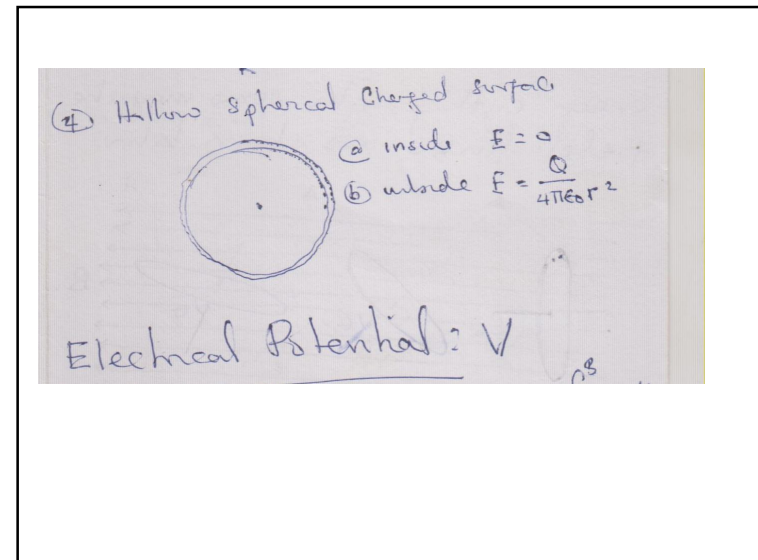 ④ Hollow Spherical Charged Surface
ⓐ inside E = 0
ⓑ outside E = Q / 4πε₀r²
Electrical Potential : V